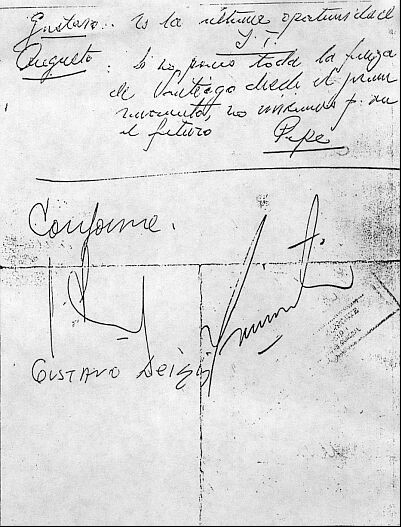 Gustavo: Es la última oportunidad
J. T.
Augusto: Si no pones toda la fuerza
de Santiago desde el primer
momento, no viviremos p. ver
el futuro
Pepe
Conforme.
GUSTAVO Leigh